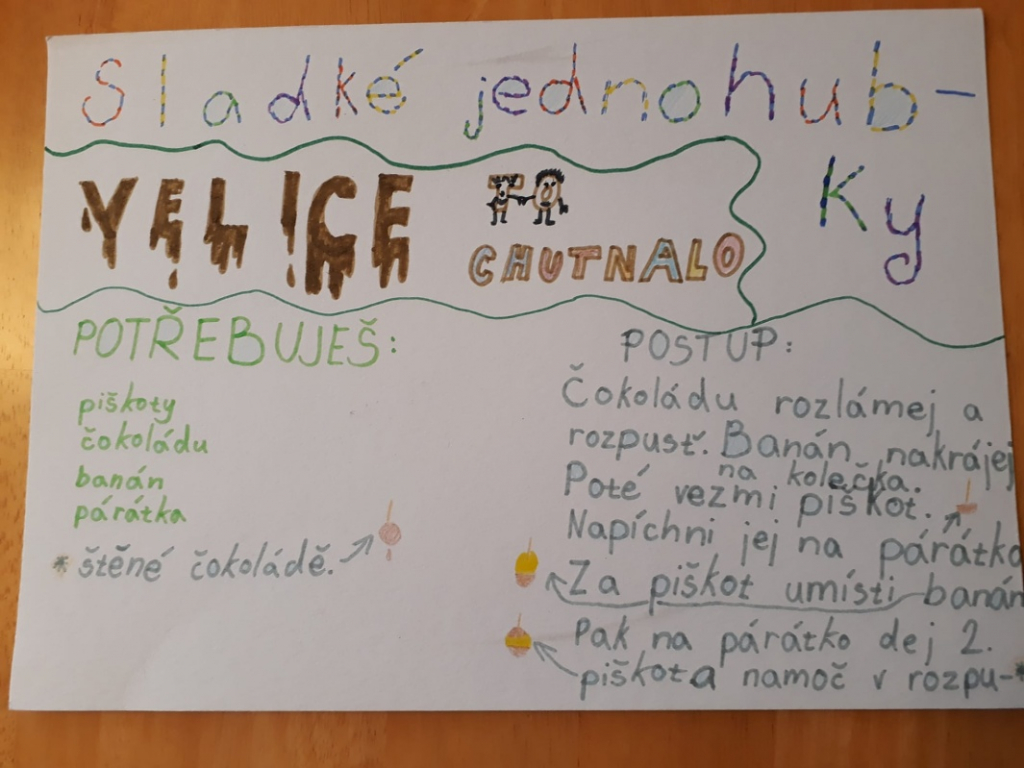 Sladké jednohub-
ky
VELICE TO
CHUTNALO
POTŘEBUJEŠ:
piškoty
čokoládu
banán
párátka
POSTUP:
Čokoládu rozlámej a
rozpusť. Banán nakrájej
na kolečka.
Poté vezmi piškot.
Napíchni jej na párátko
Za piškot umísti banán
Pak na párátko dej 2.
piškot a namoč v rozpu-*
* štěné čokoládě.